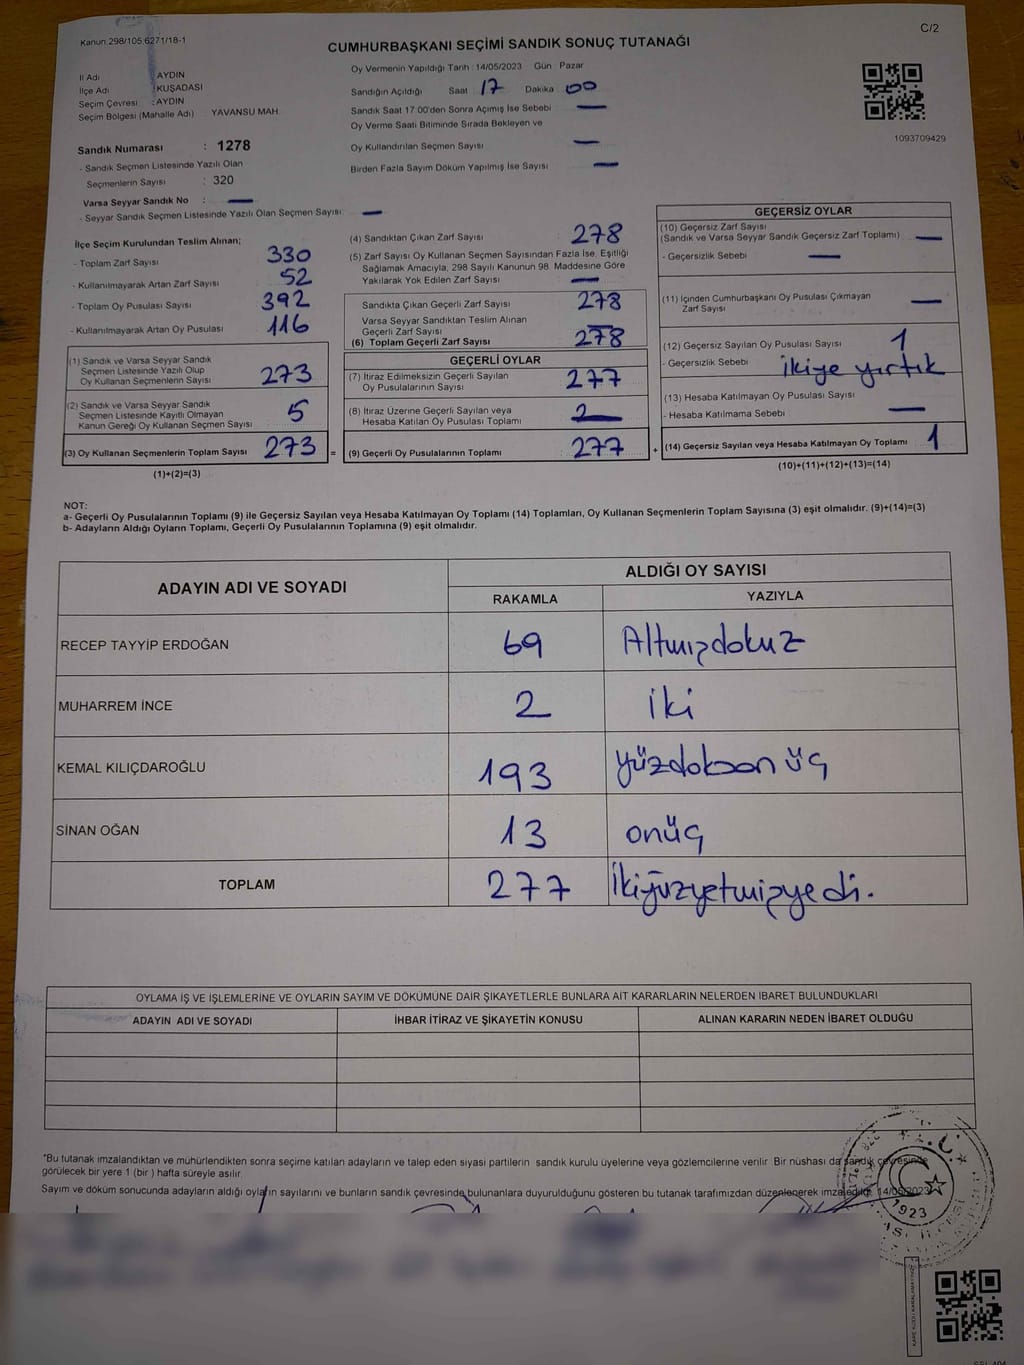 Kanun.298/105 6271/18-1
C/2
CUMHURBAŞKANI SEÇİMİ SANDIK SONUÇ TUTANAĞI
İl Adı : AYDIN
İlçe Adı : KUŞADASI
Seçim Çevresi : AYDIN
Seçim Bölgesi (Mahalle Adı) YAVANSU MAH
Sandık Numarası : 1278
- Sandık Seçmen Listesinde Yazılı Olan
Seçmenlerin Sayısı : 320
Varsa Seyyar Sandık No : —
- Seyyar Sandık Seçmen Listesinde Yazılı Olan Seçmen Sayısı: —
Oy Vermenin Yapıldığı Tarih : 14/05/2023 Gün : Pazar
Sandığın Açıldığı Saat 17 Dakika 00
Sandık Saat 17:00'den Sonra Açımış İse Sebebi —
Oy Verme Saati Bitiminde Sırada Bekleyen ve
Oy Kullandırılan Seçmen Sayısı —
Birden Fazla Sayım Döküm Yapılmış İse Sayısı —
1093709429
İlçe Seçim Kurulundan Teslim Alınan;
- Toplam Zarf Sayısı 330
- Kullanılmayarak Artan Zarf Sayısı 52
- Toplam Oy Pusulası Sayısı 392
- Kullanılmayarak Artan Oy Pusulası 116
(1) Sandık ve Varsa Seyyar Sandık
Seçmen Listesinde Yazılı Olup
Oy Kullanan Seçmenlerin Sayısı 273
(2) Sandık ve Varsa Seyyar Sandık
Seçmen Listesinde Kayıtlı Olmayan
Kanun Gereği Oy Kullanan Seçmen Sayısı 5
(3) Oy Kullanan Seçmenlerin Toplam Sayısı 273 =
(1)+(2)=(3)
(4) Sandıktan Çıkan Zarf Sayısı 278
(5) Zarf Sayısı Oy Kullanan Seçmen Sayısından Fazla İse, Eşitliği
Sağlamak Amacıyla, 298 Sayılı Kanunun 98. Maddesine Göre
Yakılarak Yok Edilen Zarf Sayısı —
Sandıkta Çıkan Geçerli Zarf Sayısı 278
Varsa Seyyar Sandıktan Teslim Alınan
Geçerli Zarf Sayısı —
(6) Toplam Geçerli Zarf Sayısı 278
GEÇERLİ OYLAR
(7) İtiraz Edilmeksizin Geçerli Sayılan
Oy Pusulalarının Sayısı 277
(8) İtiraz Üzerine Geçerli Sayılan veya
Hesaba Katılan Oy Pusulası Toplamı
(9) Geçerli Oy Pusulalarının Toplamı 277 +
GEÇERSİZ OYLAR
(10) Geçersiz Zarf Sayısı
(Sandık ve Varsa Seyyar Sandık Geçersiz Zarf Toplamı) —
- Geçersizlik Sebebi —
(11) İçinden Cumhurbaşkanı Oy Pusulası Çıkmayan
Zarf Sayısı —
(12) Geçersiz Sayılan Oy Pusulası Sayısı 1
- Geçersizlik Sebebi ikiye yırtık
(13) Hesaba Katılmayan Oy Pusulası Sayısı
- Hesaba Katılmama Sebebi —
(14) Geçersiz Sayılan veya Hesaba Katılmayan Oy Toplamı 1
(10)+(11)+(12)+(13)=(14)
NOT:
a- Geçerli Oy Pusulalarının Toplamı (9) ile Geçersiz Sayılan veya Hesaba Katılmayan Oy Toplamı (14) Toplamları, Oy Kullanan Seçmenlerin Toplam Sayısına (3) eşit olmalıdır. (9)+(14)=(3)
b- Adayların Aldığı Oyların Toplamı, Geçerli Oy Pusulalarının Toplamına (9) eşit olmalıdır.
ADAYIN ADI VE SOYADI
ALDIĞI OY SAYISI
RAKAMLA YAZIYLA
RECEP TAYYİP ERDOĞAN 69 Altmışdokuz
MUHARREM İNCE 2 iki
KEMAL KILIÇDAROĞLU 193 yüzdoksan üç
SİNAN OĞAN 13 onüç
TOPLAM 277 İkiyüzyetmişyedi.
OYLAMA İŞ VE İŞLEMLERİNE VE OYLARIN SAYIM VE DÖKÜMÜNE DAİR ŞİKAYETLERLE BUNLARA AİT KARARLARIN NELERDEN İBARET BULUNDUKLARI
ADAYIN ADI VE SOYADI İHBAR İTİRAZ VE ŞİKAYETİN KONUSU ALINAN KARARIN NEDEN İBARET OLDUĞU
"Bu tutanak imzalandıktan ve mühürlendikten sonra seçime katılan adayların ve talep eden siyasi partilerin sandık kurulu üyelerine veya gözlemcilerine verilir. Bir nüshası da sandık çevresinde
görülecek bir yere 1 (bir ) hafta süreyle asılır.
Sayım ve döküm sonucunda adayların aldığı oyların sayılarını ve bunların sandık çevresinde bulunanlara duyurulduğunu gösteren bu tutanak tarafımızdan düzenlenerek imzaledildi. 14/05/2023
T.C.
1923